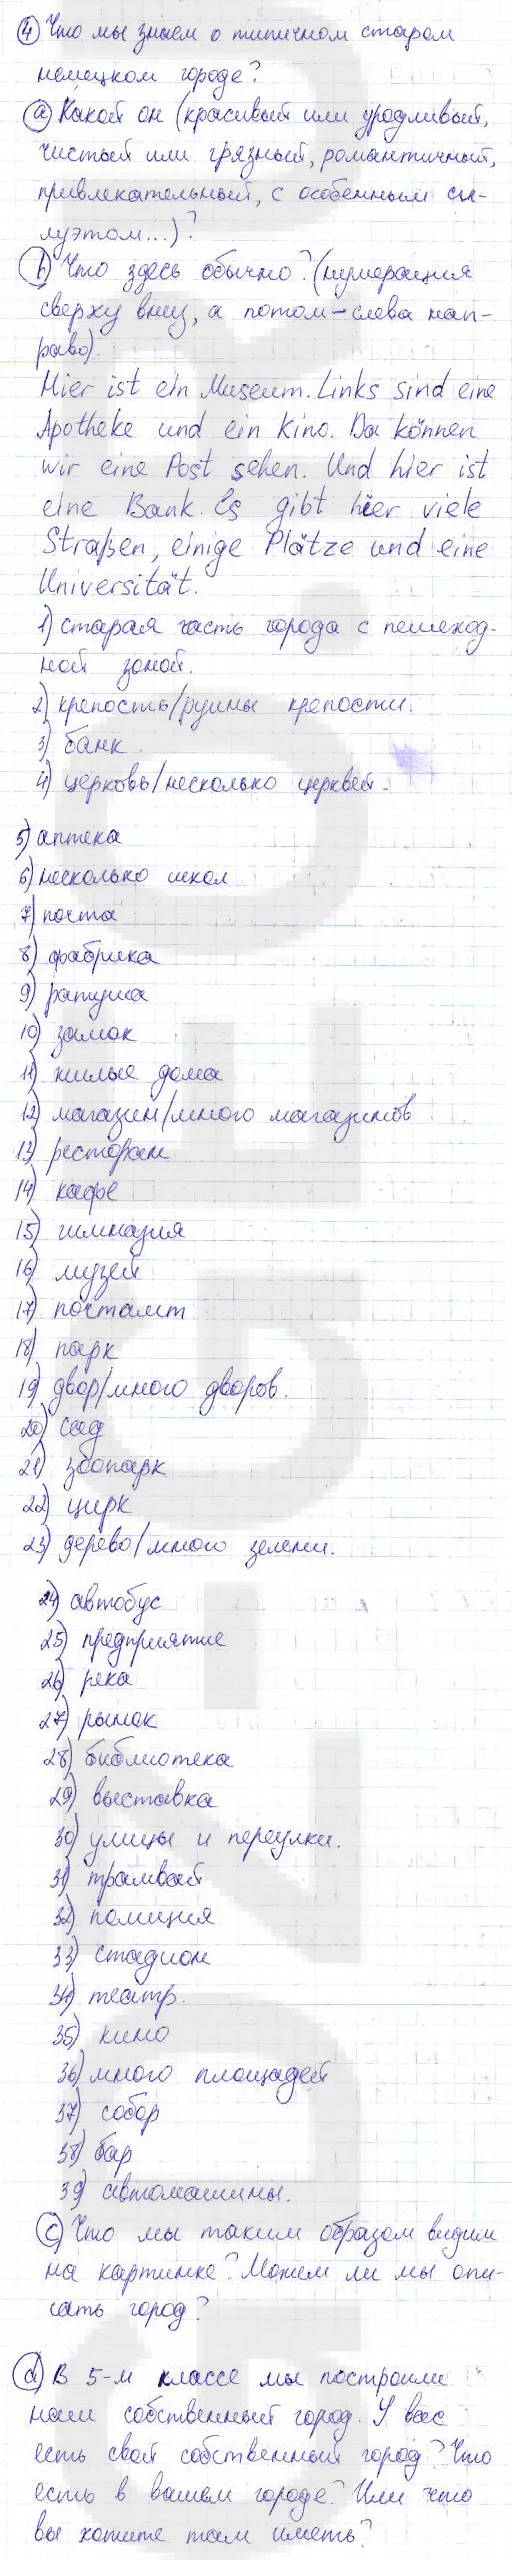 ④ Что мы знаем о типичном старом
немецком городе?
ⓐ Какой он (красивый или уродливый,
чистый или грязный, романтичный,
привлекательный, с особенным си-
луэтом...)?
ⓑ Что здесь обычно? (нумерация
сверху вниз, а потом – слева нап-
раво).
Hier ist ein Museum. Links sind eine
Apotheke und ein Kino. Da können
wir eine Post sehen. Und hier ist
eine Bank. Es gibt hier viele
Straßen, einige Plätze und eine
Universität.
1) старая часть города с пешеход-
ной зоной.
2) крепость/руины крепости.
3) банк.
4) церковь/несколько церквей.
5) аптека
6) несколько школ
7) почта
8) фабрика
9) ратуша
10) замок
11) жилые дома
12) магазин/много магазинов
13) ресторан
14) кафе
15) гимназия
16) музей
17) почтамт
18) парк
19) двор/много дворов.
20) сад
21) зоопарк
22) цирк
23) дерево/много зелени.
24) автобус
25) предприятие
26) река
27) рынок
28) библиотека
29) выставка
30) улицы и переулки.
31) трамвай
32) полиция
33) стадион
34) театр.
35) кино
36) много площадей
37) собор
38) бар
39) автомашины.
ⓒ Что мы таким образом видим
на картинке? Можем ли мы опи-
сать город?
ⓓ В 5-м классе мы построили
наш собственный город. У вас
есть свой собственный город? Что
есть в вашем городе? Или что
вы хотите там иметь?